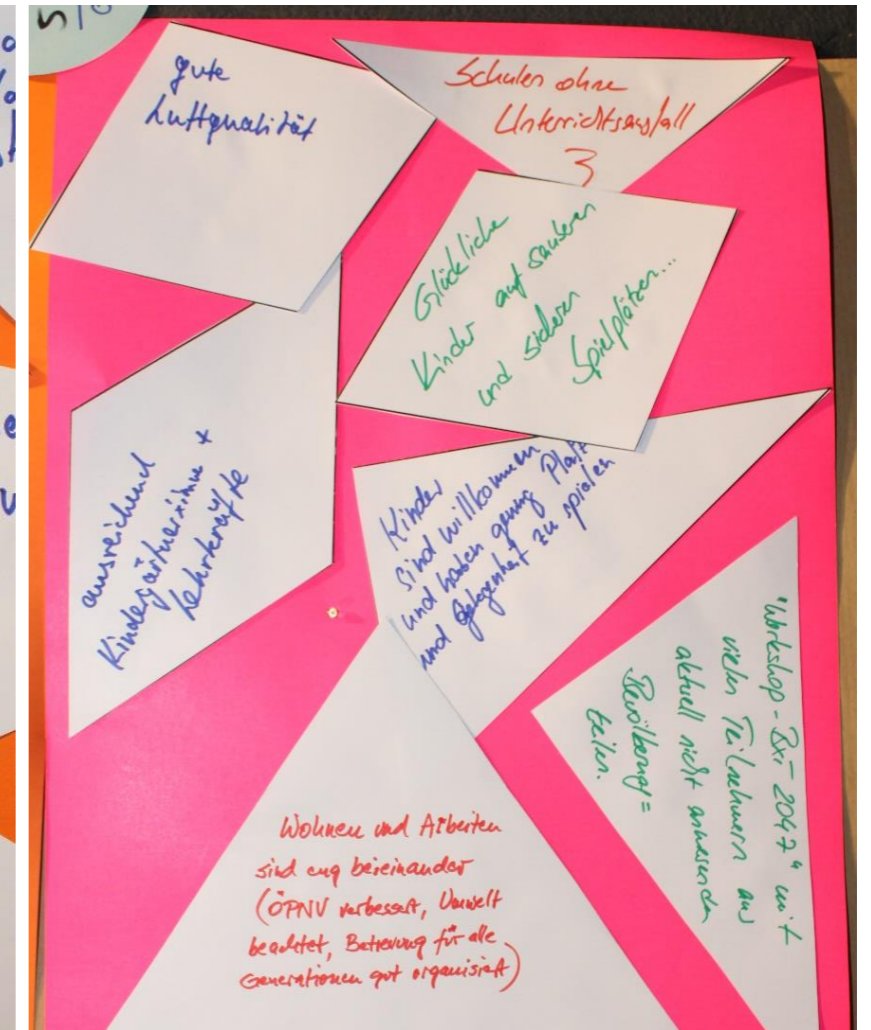 gute
Luftqualität
Schulen ohne
Unterrichtsausfall
3
Glückliche
Kinder auf sauberen
und sicheren
Spielplätzen...
ausreichend
Kindergärtnerinnen +
Lehrkräfte
Kinder
sind willkommen
und haben genung Platz
und Gelegenheit zu spielen
"Workshop-Bxi-2047" mit
vielen Teilnehmern aus
aktuell nicht anwesenden
Bevölkerungs=
teilen.
Wohnen und Arbeiten
sind eng beieinander
(ÖPNV verbessert, Umwelt
beachtet, Betreuung für alle
Generationen gut organisiert)